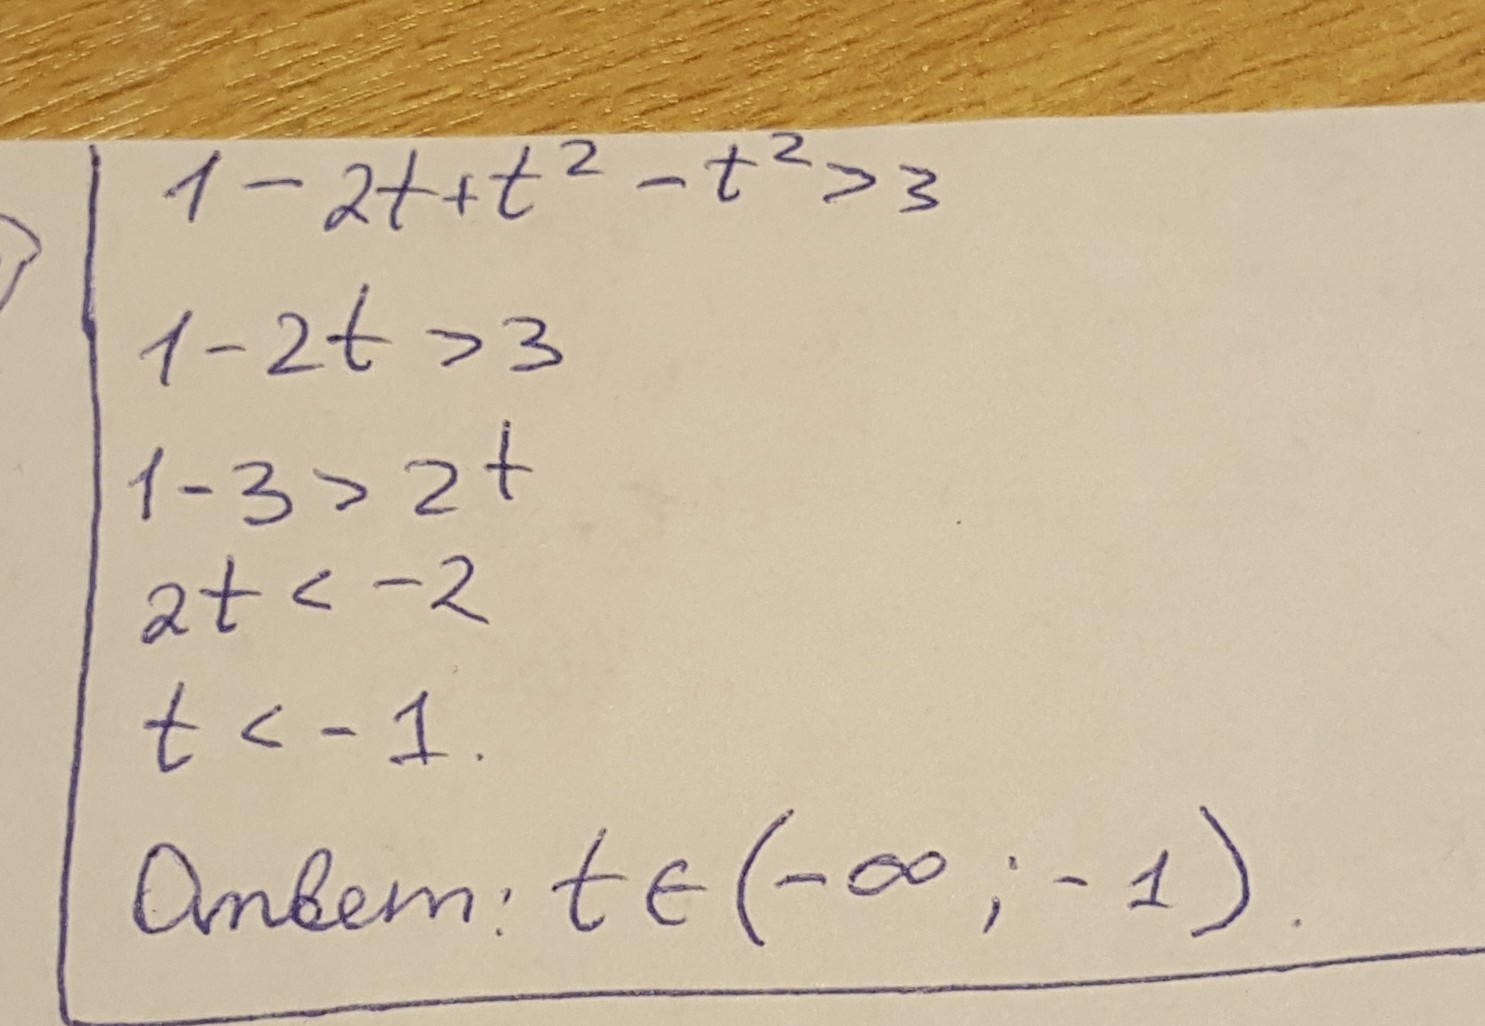 1 - 2t + t² - t² > 3
1 - 2t > 3
1 - 3 > 2t
2t < -2
t < -1.
Ответ: t ∈ (-∞ ; -1).